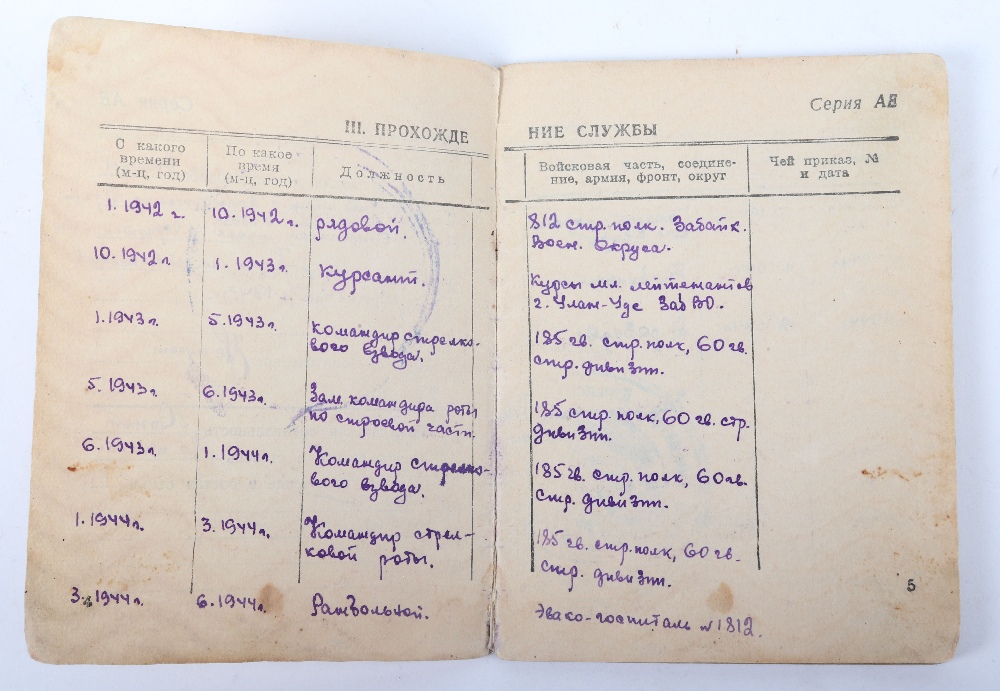 Серия АЕ
III. ПРОХОЖДЕ НИЕ СЛУЖБЫ
С какого времени (м-ц, год)
По какое время (м-ц, год)
Должность
Войсковая часть, соедине-
ние, армия, фронт, округ
Чей приказ, №
и дата
1.1942 г. 10.1942 г. рядовой. 812 стр. полк. Забайк.
Воен. Округа.
10.1942 г. 1.1943 г. Курсант. Курсы мл. лейтенантов
г. Улан-Уде ЗабВО.
1.1943 г. 5.1943 г. Командир стрелко- 185 гв. стр. полк, 60 гв.
вого взвода. стр. дивизии.
5.1943 г. 6.1943 г. Зам. командира роты 185 стр. полк, 60 гв. стр.
по строевой части. дивизии.
6.1943 г. 1.1944 г. Командир стрелко- 185 гв. стр. полк, 60 гв.
вого взвода. стр. дивизии.
1.1944 г. 3.1944 г. Командир стрел- 185 гв. стр. полк, 60 гв.
ковой роты. стр. дивизии.
3.1944 г. 6.1944 г. Ранбольной. Эвако-госпиталь № 1812.
5